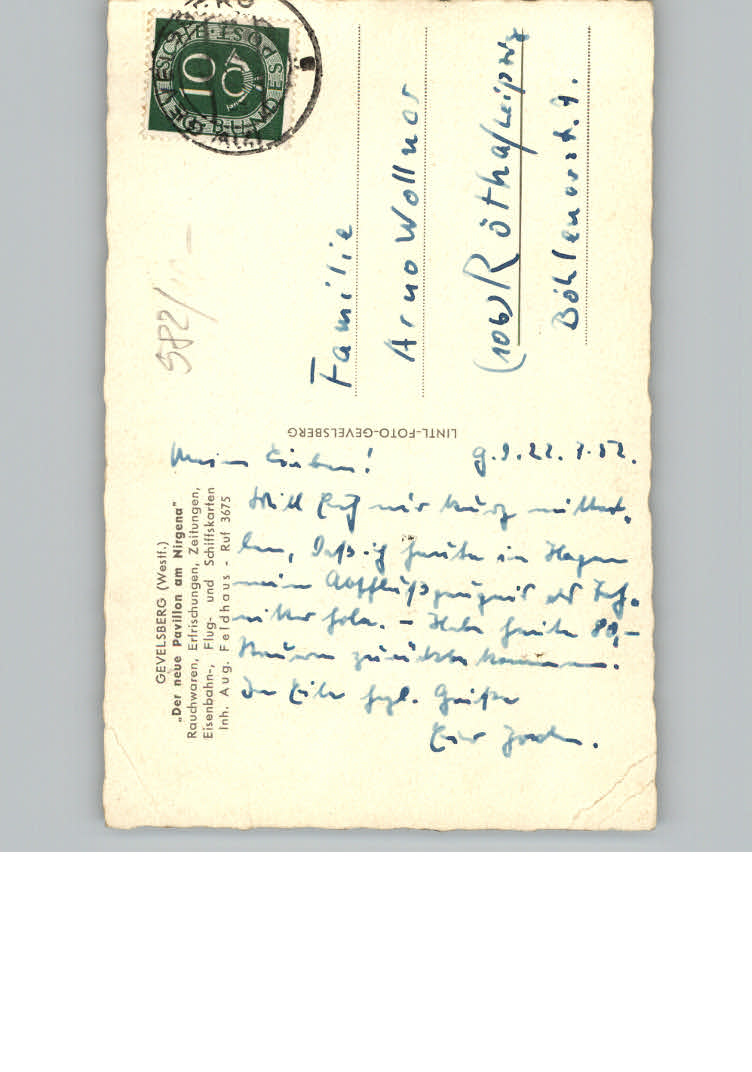 GEVELSBERG (Westf.)
„Der neue Pavillon am Nirgena"
Rauchwaren, Erfrischungen, Zeitungen,
Eisenbahn-, Flug- und Schiffskarten
Inh. Aug. Feldhaus - Ruf 3675
LINTL-FOTO-GEVELSBERG
Meine Lieben! 22. 52.
Will Euch nur kurz mittei-
len, daß ich heute in Hagen
mein Abschlußzeugnis als Tech-
niker hole. - Habe heute 80,-
Steuern zurückbekommen.
In Eile hzl. Grüße
Euer
DEUTSCHE BUNDESPOST
10
582/
Familie
Arno Wollner
(10b) Rötha/Leipzig
Böhlenerstr. 9.